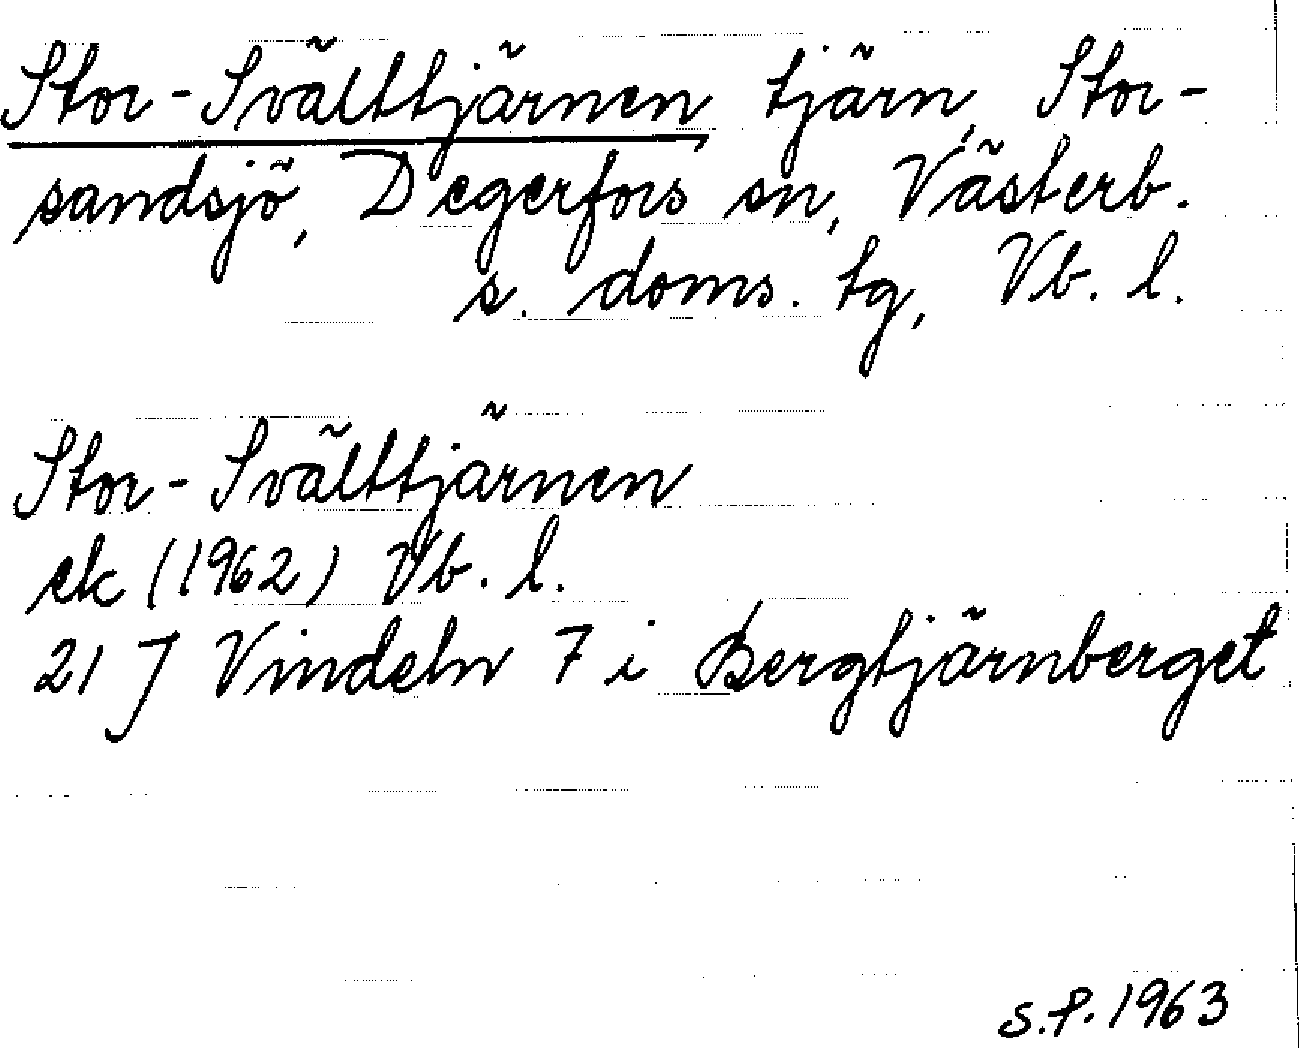 Stor-Svälttjärnen tjärn, Stor-
sandsjö, Degerfors sn, Västerb.
s. doms. tg, Vb. l.
Stor-Svälttjärnen
ek (1962) Vb. l.
21 J Vindeln 7 i Bergtjärnberget
S.P. 1963